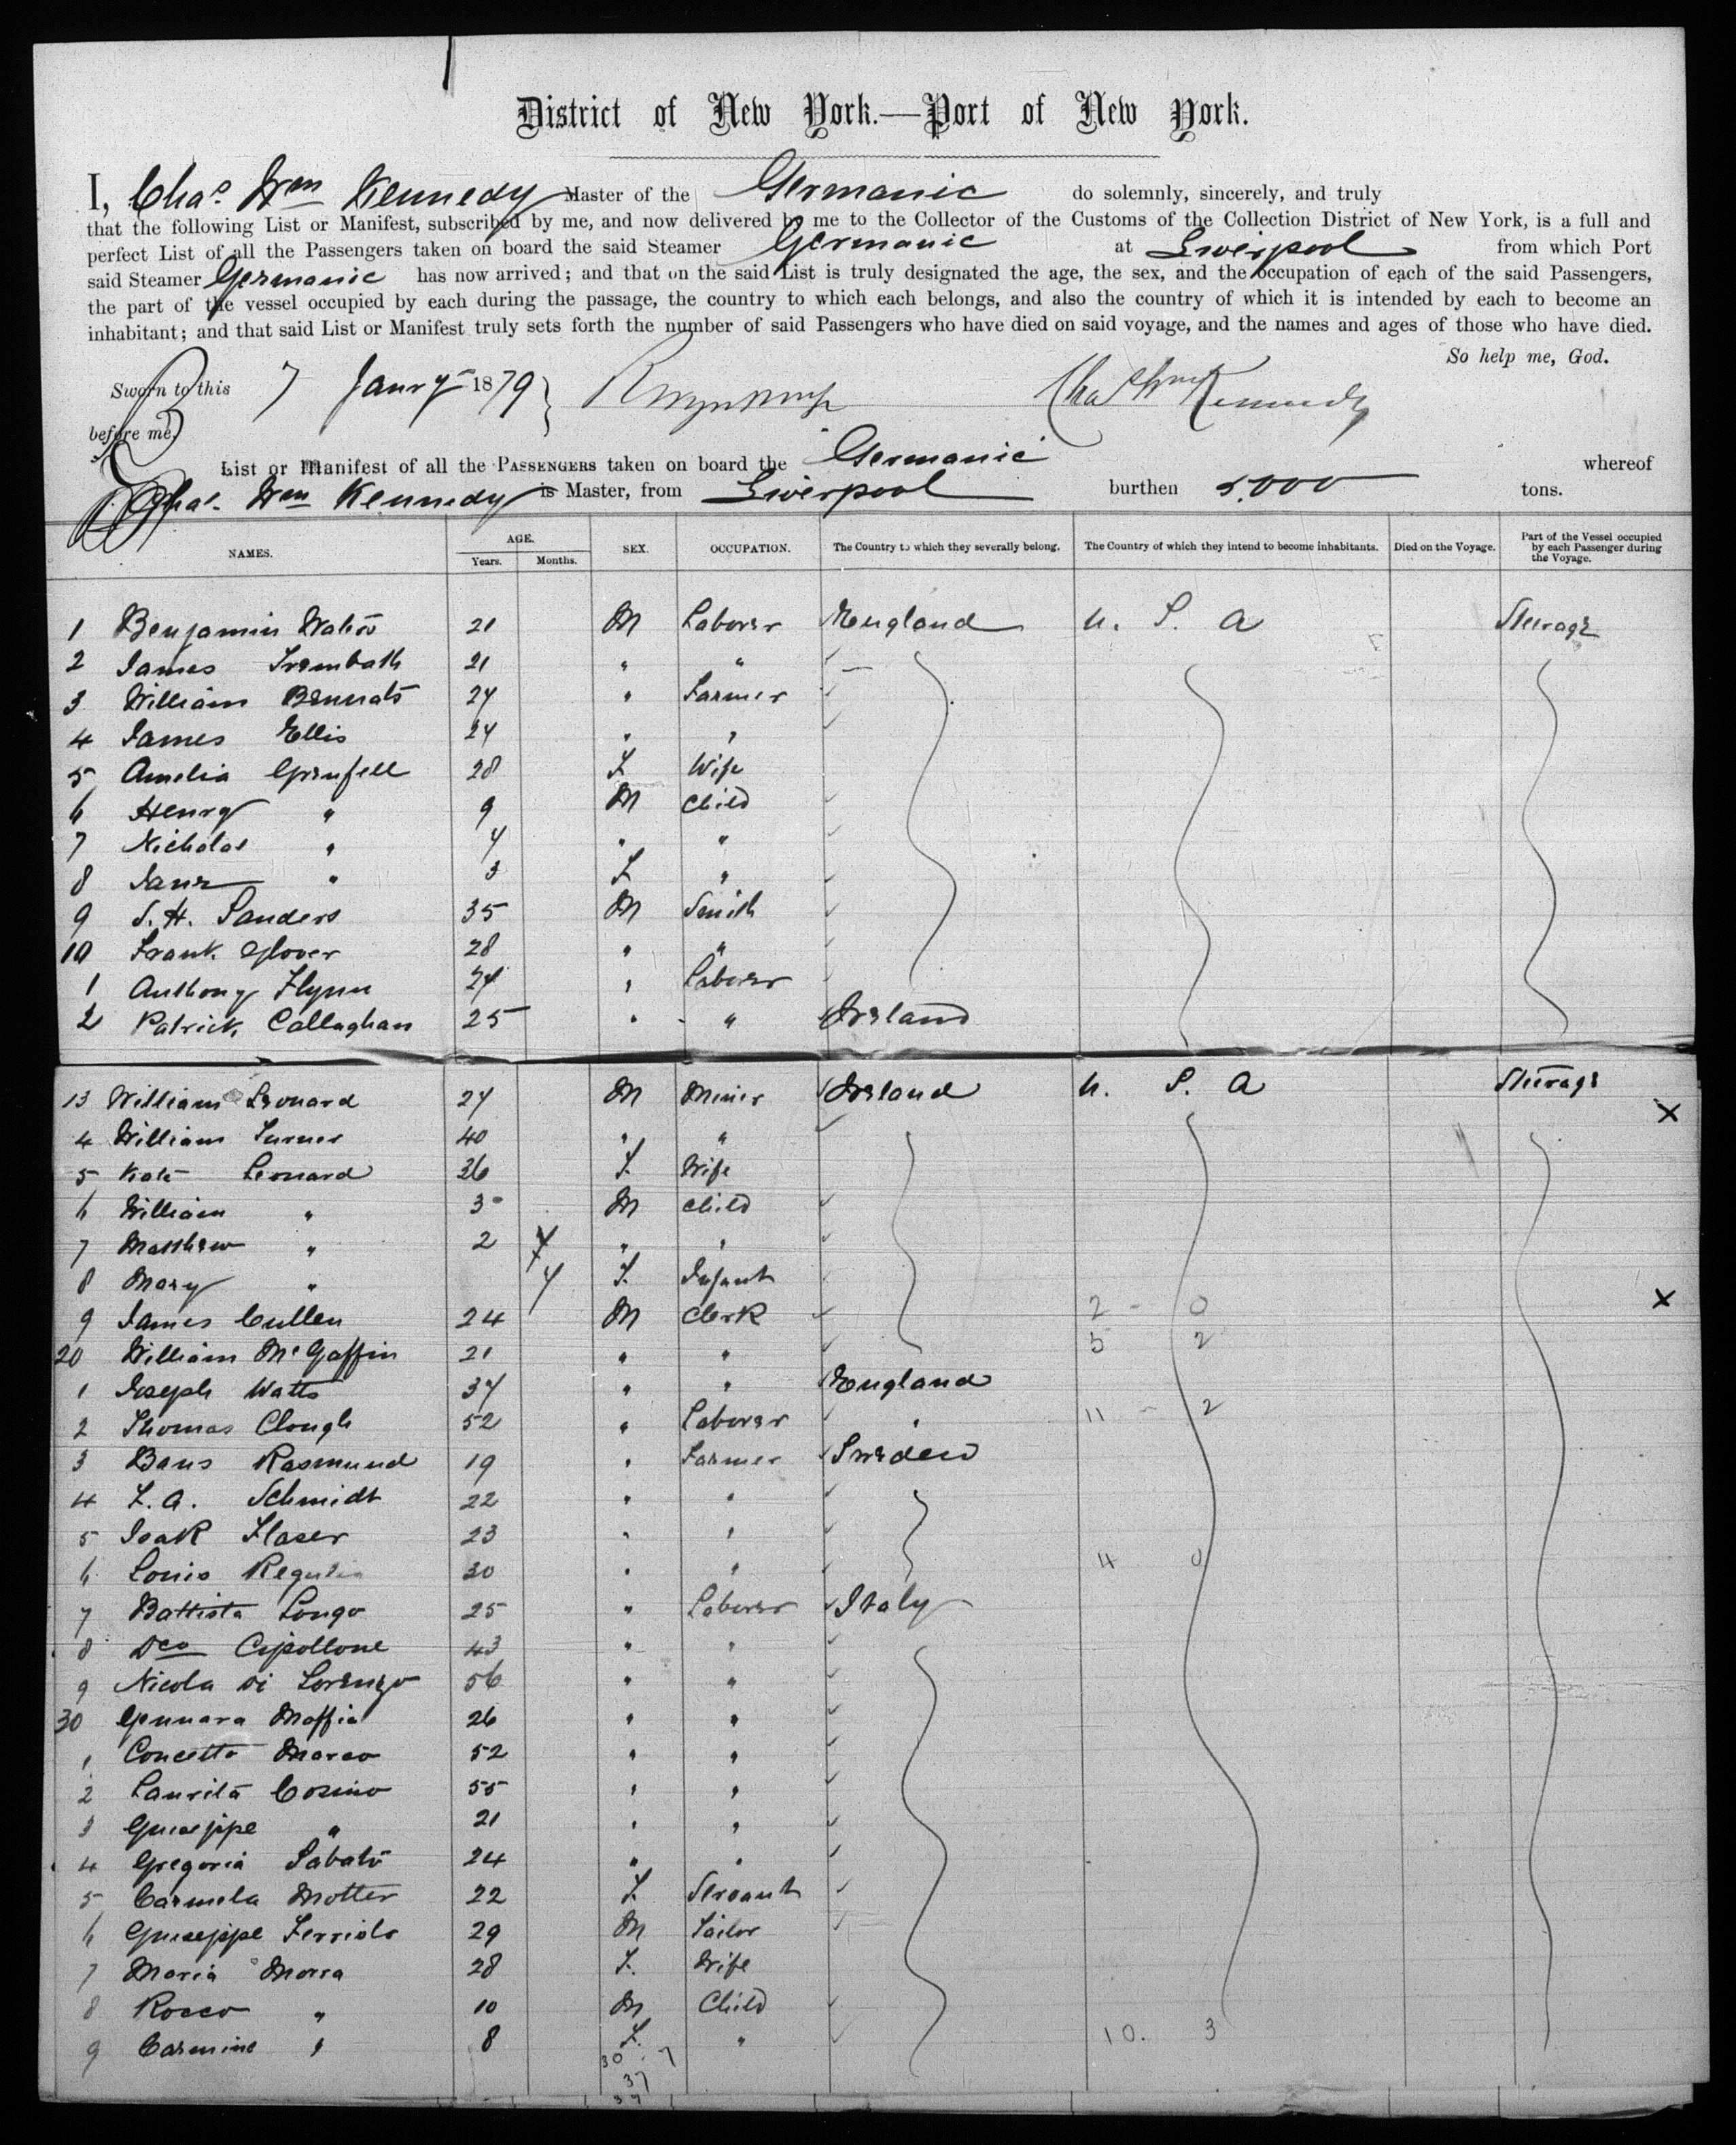 District of New York.—Port of New York.
I, Chas. Wm Kennedy Master of the Germanic do solemnly, sincerely, and truly
that the following List or Manifest, subscribed by me, and now delivered by me to the Collector of the Customs of the Collection District of New York, is a full and
perfect List of all the Passengers taken on board the said Steamer Germanic at Liverpool from which Port
said Steamer Germanic has now arrived; and that on the said List is truly designated the age, the sex, and the occupation of each of the said Passengers,
the part of the vessel occupied by each during the passage, the country to which each belongs, and also the country of which it is intended by each to become an
inhabitant; and that said List or Manifest truly sets forth the number of said Passengers who have died on said voyage, and the names and ages of those who have died.
So help me, God.
Sworn to this 7 Janry 1879
before me, Chas Wm Kennedy
List or Manifest of all the PASSENGERS taken on board the Germanic whereof
Chas. Wm Kennedy is Master, from Liverpool burthen 5,000 tons.
NAMES. AGE. Years. Months. SEX. OCCUPATION. The Country to which they severally belong. The Country of which they intend to become inhabitants. Died on the Voyage. Part of the Vessel occupied by each Passenger during the Voyage.
1 Benjamin 21 M Laborer England U. S. A Steerage
2 James Trembath 21 " "
3 William Bennats 24 " Farmer
4 James Ellis 24 " "
5 Amelia Grenfell 28 F Wife
6 Henry " 9 M Child
7 Nicholas " 4 " "
8 Jane " 3 F "
9 S. H. Sanders 35 M Smith
10 Frank Glover 28 " "
1 Anthony Flynn 24 " Laborer
2 Patrick Callaghan 25 " " Ireland
13 William Leonard 24 M Miner Ireland U. S. A Steerage
4 William Turner 40 " " X
5 Kate Leonard 26 F. Wife
6 William " 3 M Child
7 Matthew " 2 " "
8 Mary " 4 F. Infant
9 James Cullen 24 M Clerk 2 - 0 X
20 William McGaffin 21 " " 5 2
1 Joseph Watts 34 " " England
2 Thomas Clough 52 " Laborer " 11 - 2
3 Bans Rasmund 19 " Farmer Sweden
4 F. A. Schmidt 22 " "
5 Isak Flaser 23 " "
6 Louis 30 " " 4 0
7 Battista Longo 25 " Laborer Italy
8 Dco Cipollone 43 " "
9 Nicola Di Lorenzo 56 " "
30 Gennara Maffia 26 " "
1 Concetta Marco 52 " "
2 Laurita Cosino 55 " "
3 Guiseppe " 21 " "
4 Gregoria Sabato 24 " "
5 Carmela Motter 22 F. Servant
6 Guiseppe 29 M Tailor
7 Maria Morra 28 F. Wife
8 Rocco " 10 M Child
9 Carmine " 8 F. " 10. 3
30 . 7
37